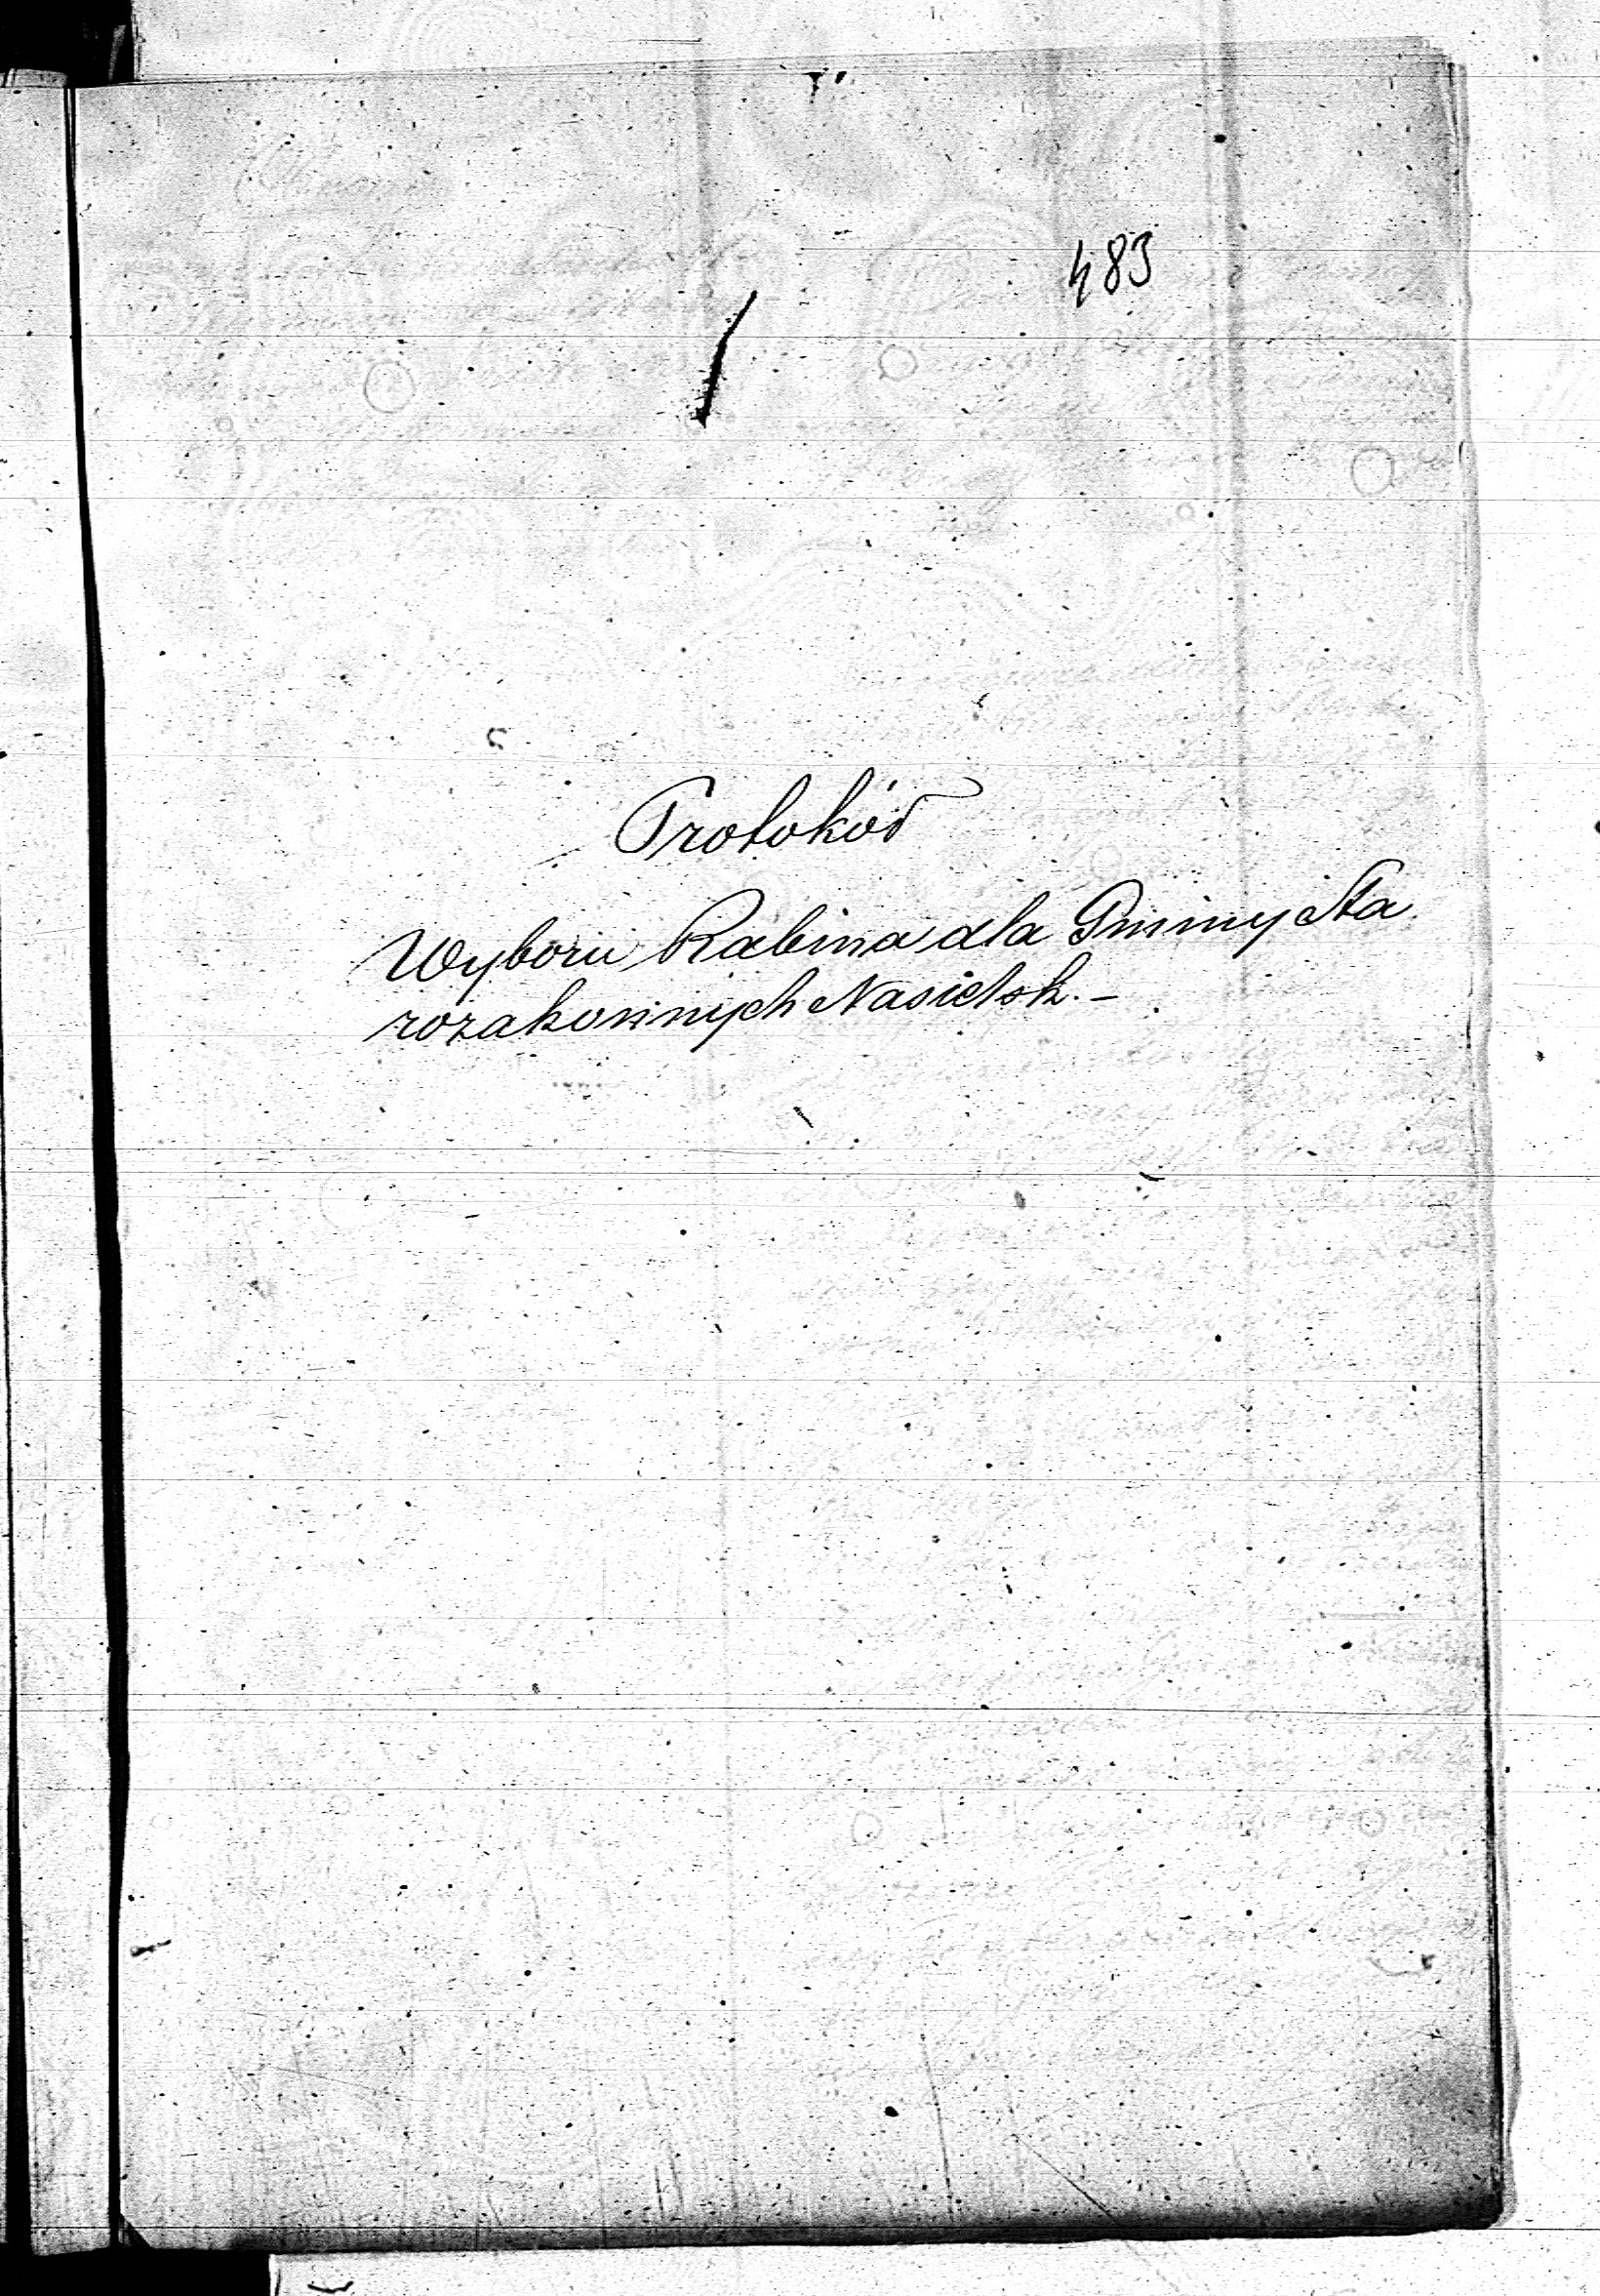 483
Protokół
Wyboru Rabina dla Gminy Sta
rozakonnych Nasielsk. –